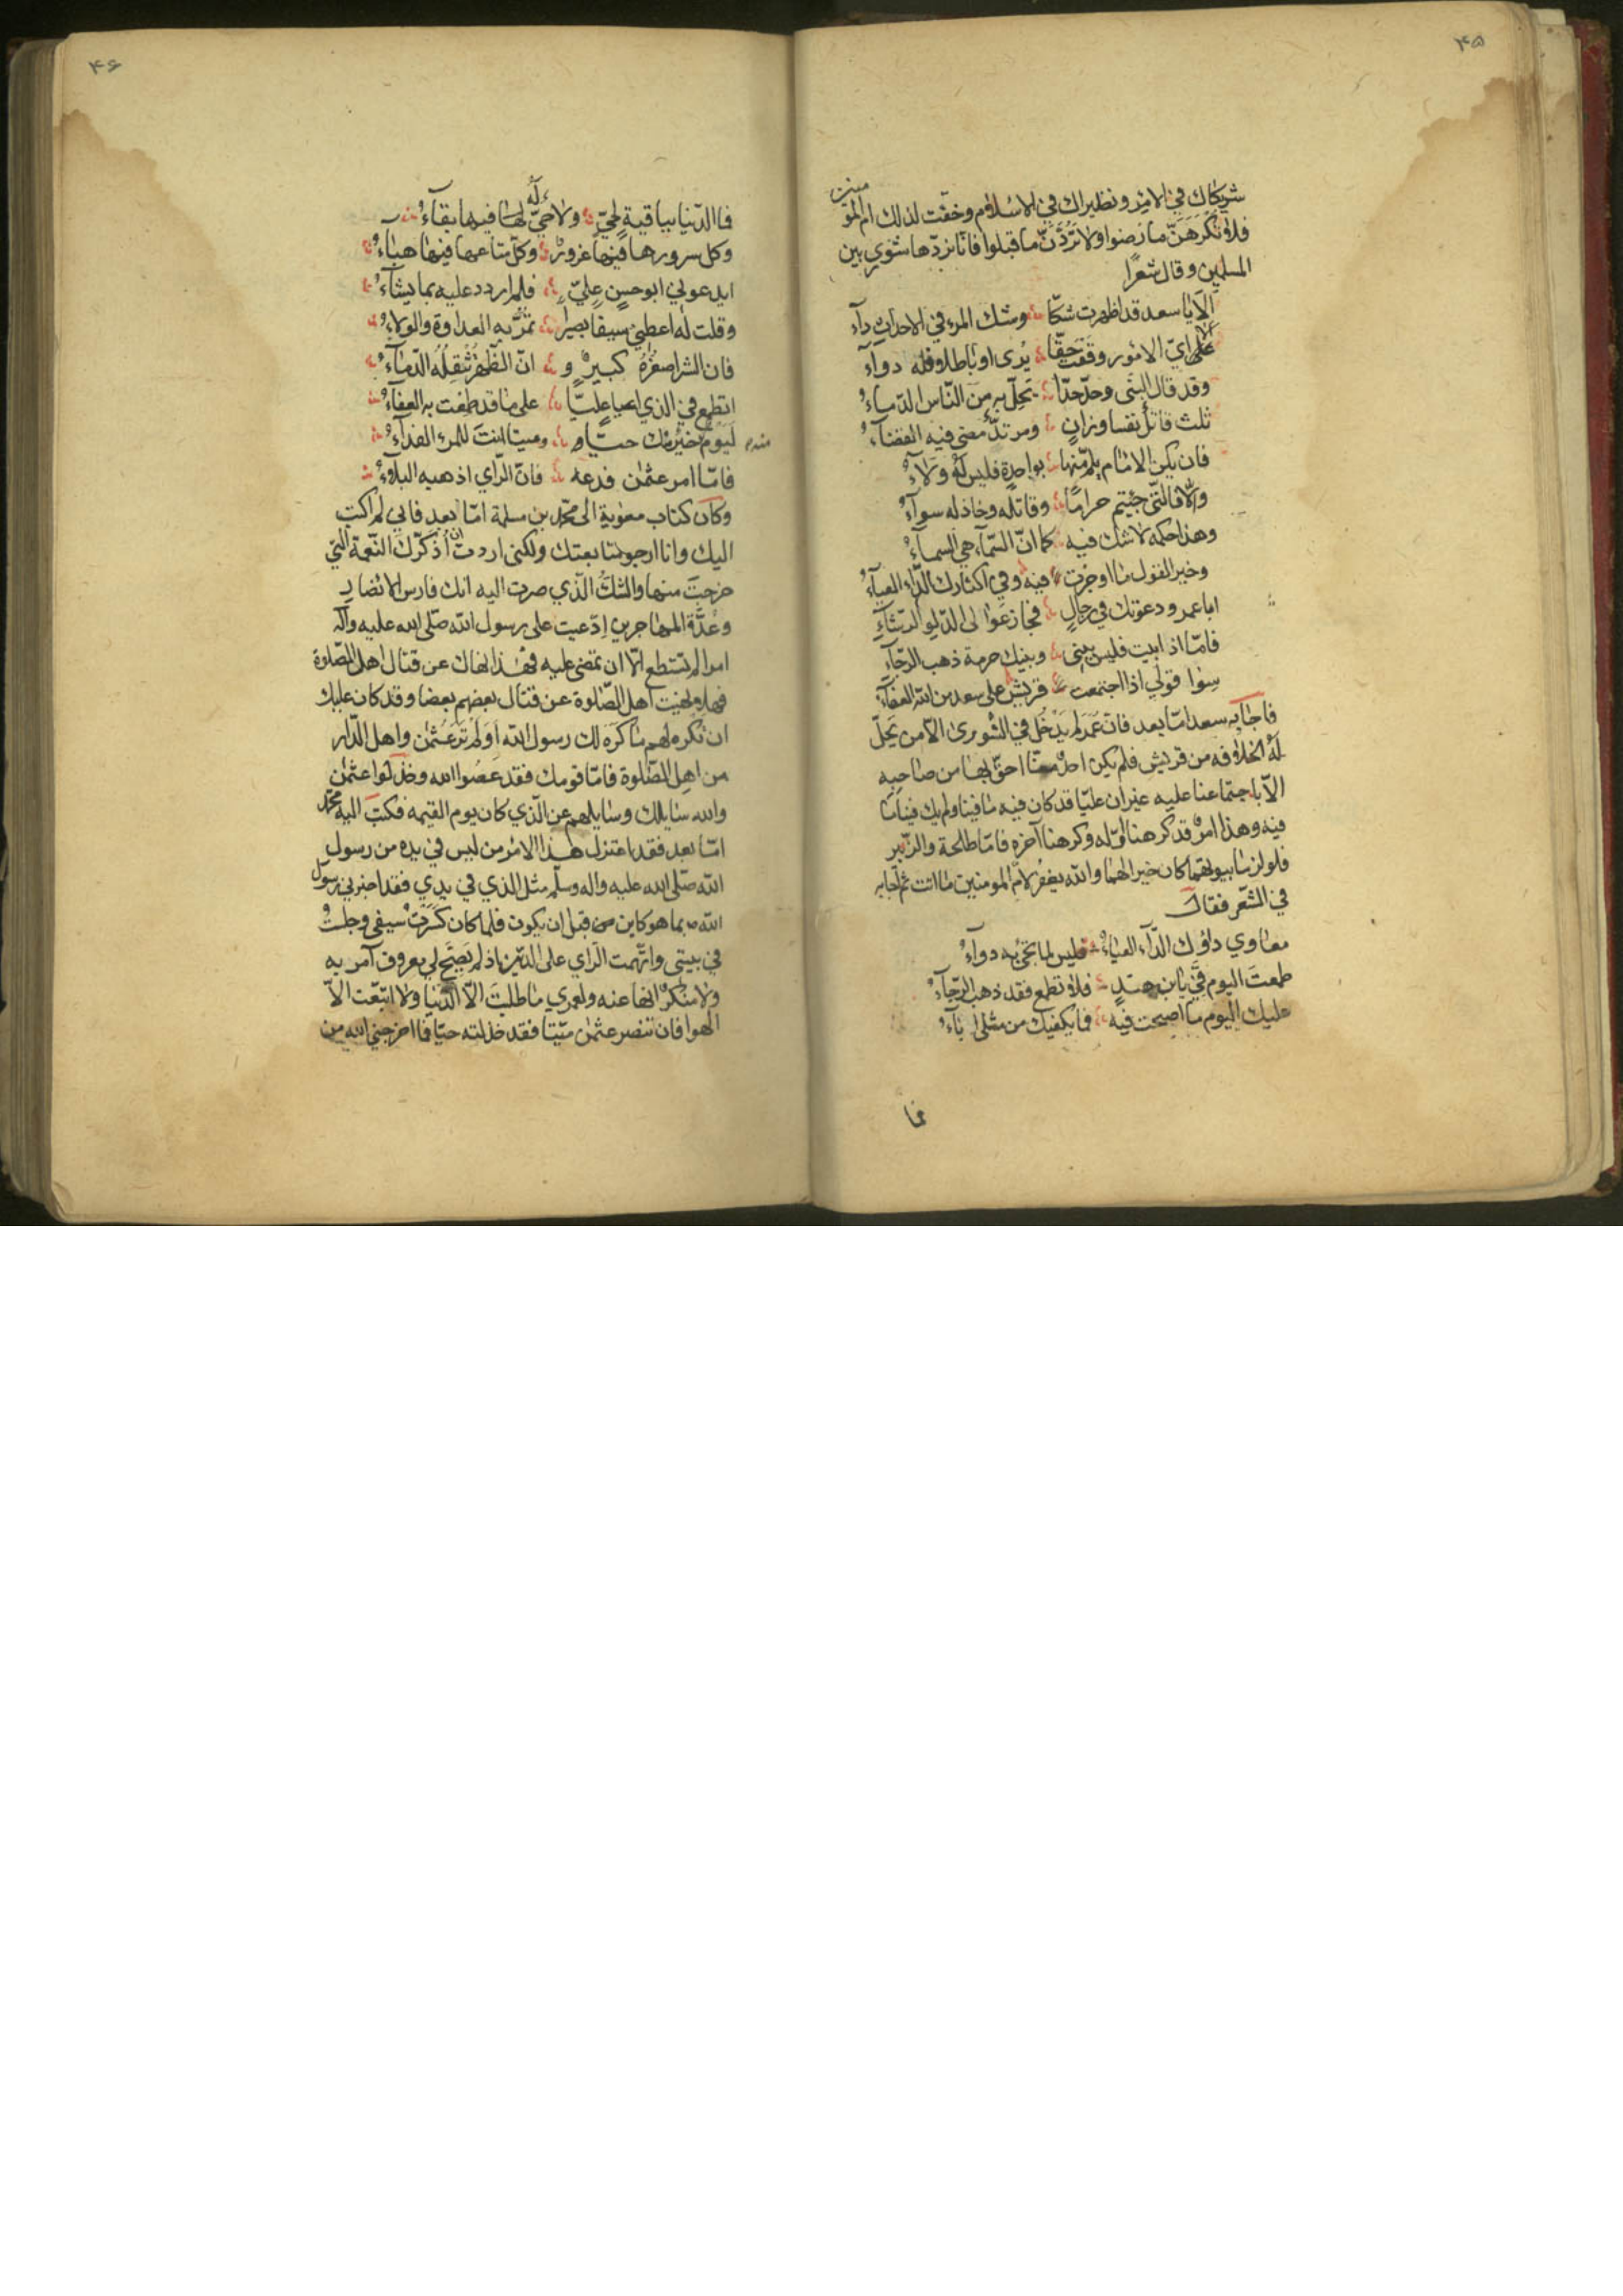 ۴۵
شريكاك في الامر ونظيراك في الاسلام وخفّت لذلك ام المو
منين
فلا تكرهنّ ما رضوا ولا تردّنّ ما قبلوا فانّا نردّها شورى بين
المسلمين وقال شعرًا
الا يا سعد قد اظهرت شكّا وشك المرء في الاحداث داء
على ايّ الامور وقفت حقّا يُرى او باطلا وفله دواء
وقد قال النبي وحدّ حدّا تحلّ به من النّاس الدّماءُ
ثلث قاتل نفسا وزانٍ ومرتدّ مضى فيه القضاءُ
فان يكن الامام يلمّ منها بواحدةٍ فليس له ولاءُ
والّا فالتي جئتم حرامًا وقاتله وخاذله سواءُ
وهذا حكمه لا شك فيه كما انّ السّماء هي السماءُ
وخير القول ما اوجزت فيه وفي اكثارك الدّاء العياءُ
ابا عمرو دعوتك في رجالٍ فجاز عوالي الدّلو الرّشاءِ
فامّا اذ ابيت فليس بيني وبينك حرمة ذهب الرّجاء
سوا قولي اذا اجتمعت قريش على سعد من الله العفاء
فاجابه سعد امّا بعد فانّ عمر لم يدخل في الشورى الّا من يحلّ
له الخلافه من قريش فلم يكن احد منّا احقّ بها من صاحبه
الّا باجتماعنا عليه غير ان عليّا قد كان فيه ما فينا ولم يك فينا ما
فيه وهذا امر قد كرهنا اوّله وكرهنا آخره فامّا طلحة والزّبير
فلو لزما بيوتهما كان خيرا لهما والله يغفر لامّ المومنين ما اتت ثمّ اجابه
في الشّعر فقال
معاوي داؤك الدّاء العياءُ فليس لما تجيء به دواءُ
طمعت اليوم فيّ يا بن هندٍ فلا تطمع فقد ذهب الرّجاءُ
عليك اليوم ما اصبحت فيه فما يكفيك من مثلى اباءُ
فما
۴۶
فما الدّنيا بباقية لحيّ ولا حيّ له فيها بقاءُ
وكل سرورها فيها غرورٌ وكلّ متاعها فيها هباءُ
ايدعوني ابو حسنٍ عليّ فلم اردد عليه بما يشاءُ
وقلت له اعطني سيفا بصيرا تمرّ به العداوة والولاءُ
فان الشر اصغره كبيرٌ و انّ الظّهر تثقله الدّماءُ
اتطمع في الذي اعيا عليّا على ما قد طمعت به العفاءُ
ليوم خير منك حيّا وميتا انت للمرء الفداءُ
منه
فامّا امر عثمن فدعه فانّ الرّاي اذهبه البلاءُ
وكان كتاب معوية الى محمّد بن مسلمة امّا بعد فاني لم اكتب
اليك وانا ارجو متابعتك ولكني اردت ان اذكّرك النّعمة التي
خرجت منها والشكّ الّذي صرت اليه انك فارس الانصار
وعُدّة المهاجرين ادّعيت على رسول الله صلّى الله عليه وآله
امرا لم تستطع الّا ان تمضى عليه فهذا نهاك عن قتال اهل الصّلوة
فهلا نهيت اهل الصّلوة عن قتال بعضهم بعضا وقد كان عليك
ان تكره لهم ما كره لك رسول الله اولم تر عثمن واهل الدّار
من اهل الصّلوة فامّا قومك فقد عصوا الله وخذلوا عثمن
والله سايلك وسايلهم عن الّذي كان يوم القيمه فكتب اليه محمّد
امّا بعد فقد اعتزل هذا الامر من ليس في يده من رسول
الله صلّى الله عليه واله وسلّم مثل الذي في يدي فقد اخبرني رسول
الله ص بما هو كاين من قبل ان يكون فلما كان كسرت سيفي وجلست
في بيتي واتّهمت الرّاي على الدّين اذ لم يصحّ لي معروف آمر به
ولا منكر انها عنه ولعمري ما طلبت الّا الدّنيا ولا اتّبعت الّا
الهوا فان تنصر عثمن ميّتا فقد خذلته حيّا فما اخرجني الله من